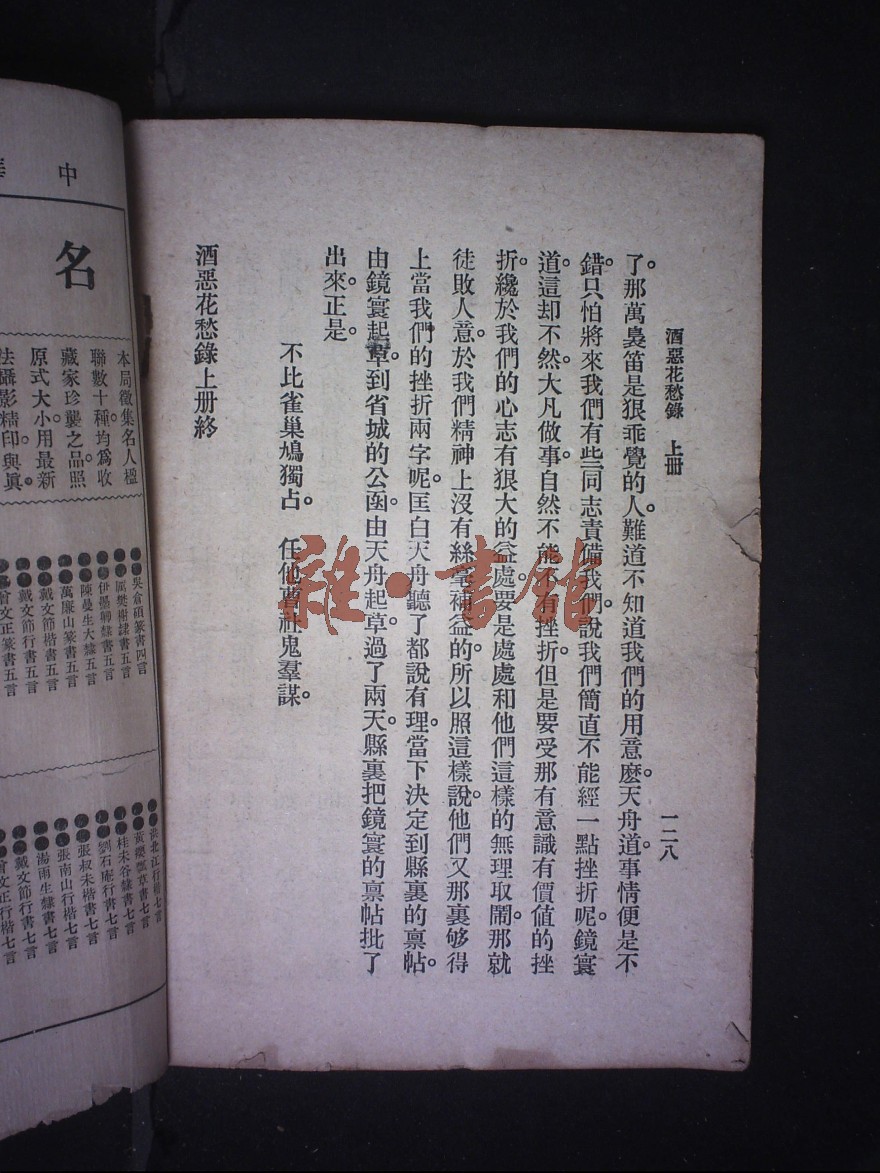 酒惡花愁錄 上冊
一二八
了。那萬裊笛是狠乖覺的人。難道不知道我們的用意麽。天舟道。事情便是不
錯。只怕將來我們有些同志責備我們。說我們簡直不能經一點挫折呢。鏡寰
道。這却不然。大凡做事。自然不能不有挫折。但是要受那有意識有價值的挫
折。纔於我們的心志有狠大的益處。要是處處和他們這樣的無理取鬧。那就
徒敗人意。於我們精神上沒有絲毫補益的。所以照這樣說。他們又那裏够得
上當我們的挫折兩字呢。匡白天舟聽了。都說有理。當下決定到縣裏的稟帖。
由鏡寰起草。到省城的公函。由天舟起草。過了兩天。縣裏把鏡寰的稟帖批了
出來。正是。
不比雀巢鳩獨占。 任他曹社鬼羣謀。
酒惡花愁錄上册終
雜·書館
中華
名
本局徵集名人楹
聯數十種。均爲收
藏家珍襲之品。照
原式大小。用最新
法攝影精印。與眞
吳倉碩篆書四言
厲樊榭隸書五言
伊墨卿隸書五言
陳曼生大隸五言
萬廉山篆書五言
戴文節楷書五言
戴文節行書五言
曾文正篆書五言
洪北江行楷七言
黃癭瓢草書七言
桂未谷隸書七言
劉石庵行書七言
張叔未楷書七言
張南山行楷七言
湯雨生隸書七言
戴文節行書七言
曾文正行楷七言